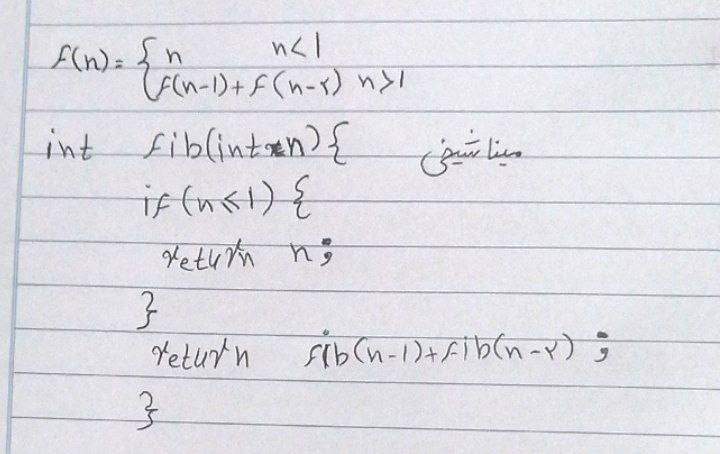 f(n) = { n n<1
f(n-1) + f(n-۲) n>1
int fib(int n){ مینا شیخی
if (n≤1) {
return n;
}
return fib(n-1)+fib(n-۲) ;
}